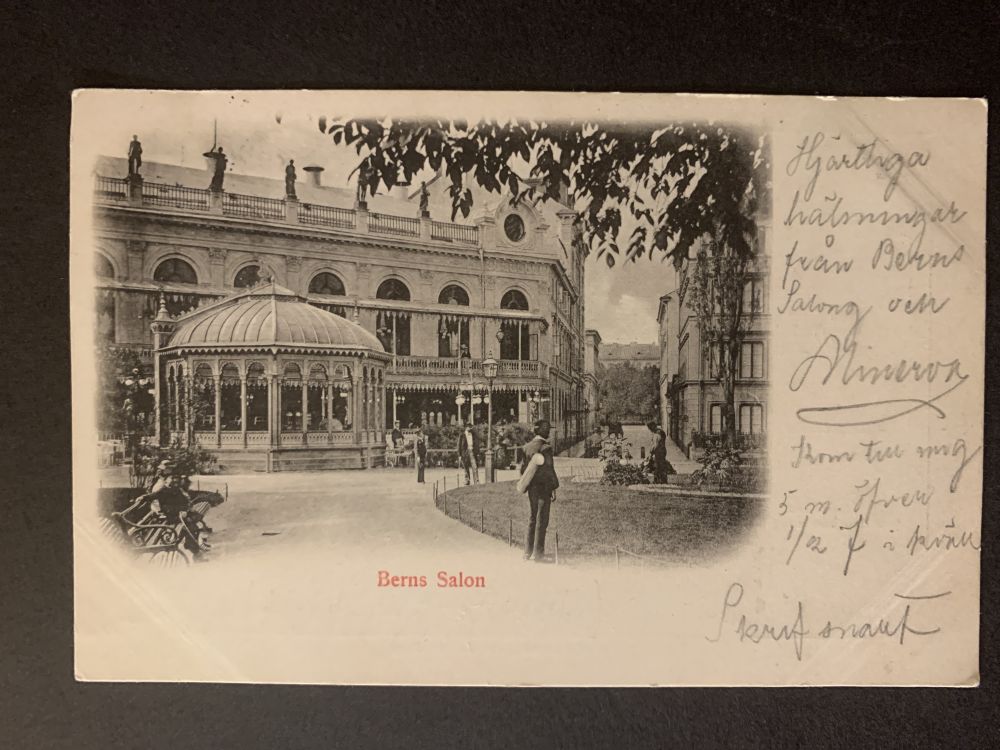 Berns Salon
Hjärtliga
hälsningar
från Berns
Salong och
Minerva
Kom till mig
5 m. öfver
1/2 7 i kväll
Skrif snart